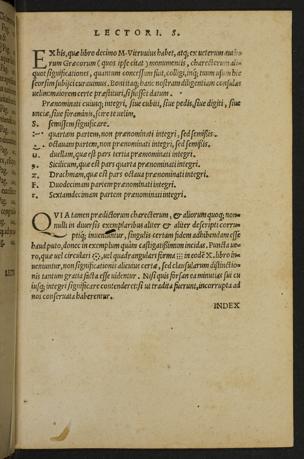 LECTORI. S.
EX his, quæ libro decimo M. Vitruuius habet, atq; ex ueterum autho
rum Græcorum (quos ipse citat) monumentis, charecterum ali
quot significationes, quantum concessum fuit, colligi, inq; tuum usum hic
seorsim subijci curauimus. Boni itaq; hanc nostram diligentiam consulas
uelim
Prænominati cuiusq; integri, siue cubiti, siue pedis, siue digiti, siue
unciæ, siue foraminis,
S. semissem significare.
quartam partem, non prænominati integri, sed semissis.
octauam partem, non prænominati integri, sed semissis.
u. duellam, quæ est pars tertia prænominati integri.
9. Sicilicum, quæ est pars quarta prænominati integri.
z. Drachmam, quæ est pars octaua prænominati integri.
F. Duodecimam partem prænominati integri.
r. Sextamdecimam partem prænominati integri.
QVIA tamen prædictorum charecterum, & aliorum quoq; non-
nulli in diuersis exemplaribus aliter & aliter descripti corru-
ptiq; inueniuntur, singulis certam fidem adhibendam esse
haud puto, donec in exemplum quoddam castigatissimum incidas. Puncta ue-
ro, quæ uel circulari uel quadrangulari forma in eodē X. libro in-
ueniuntur, non significationis alicuius certæ, sed clausularum distinctio-
nis tantum gratia facta esse uidentur. Nisi quis forsan ea minutias sui cu-
iusq; integri significare contenderet: si ut tradita fuerunt, incorrupta ad
nos conseruata haberentur.
INDEX